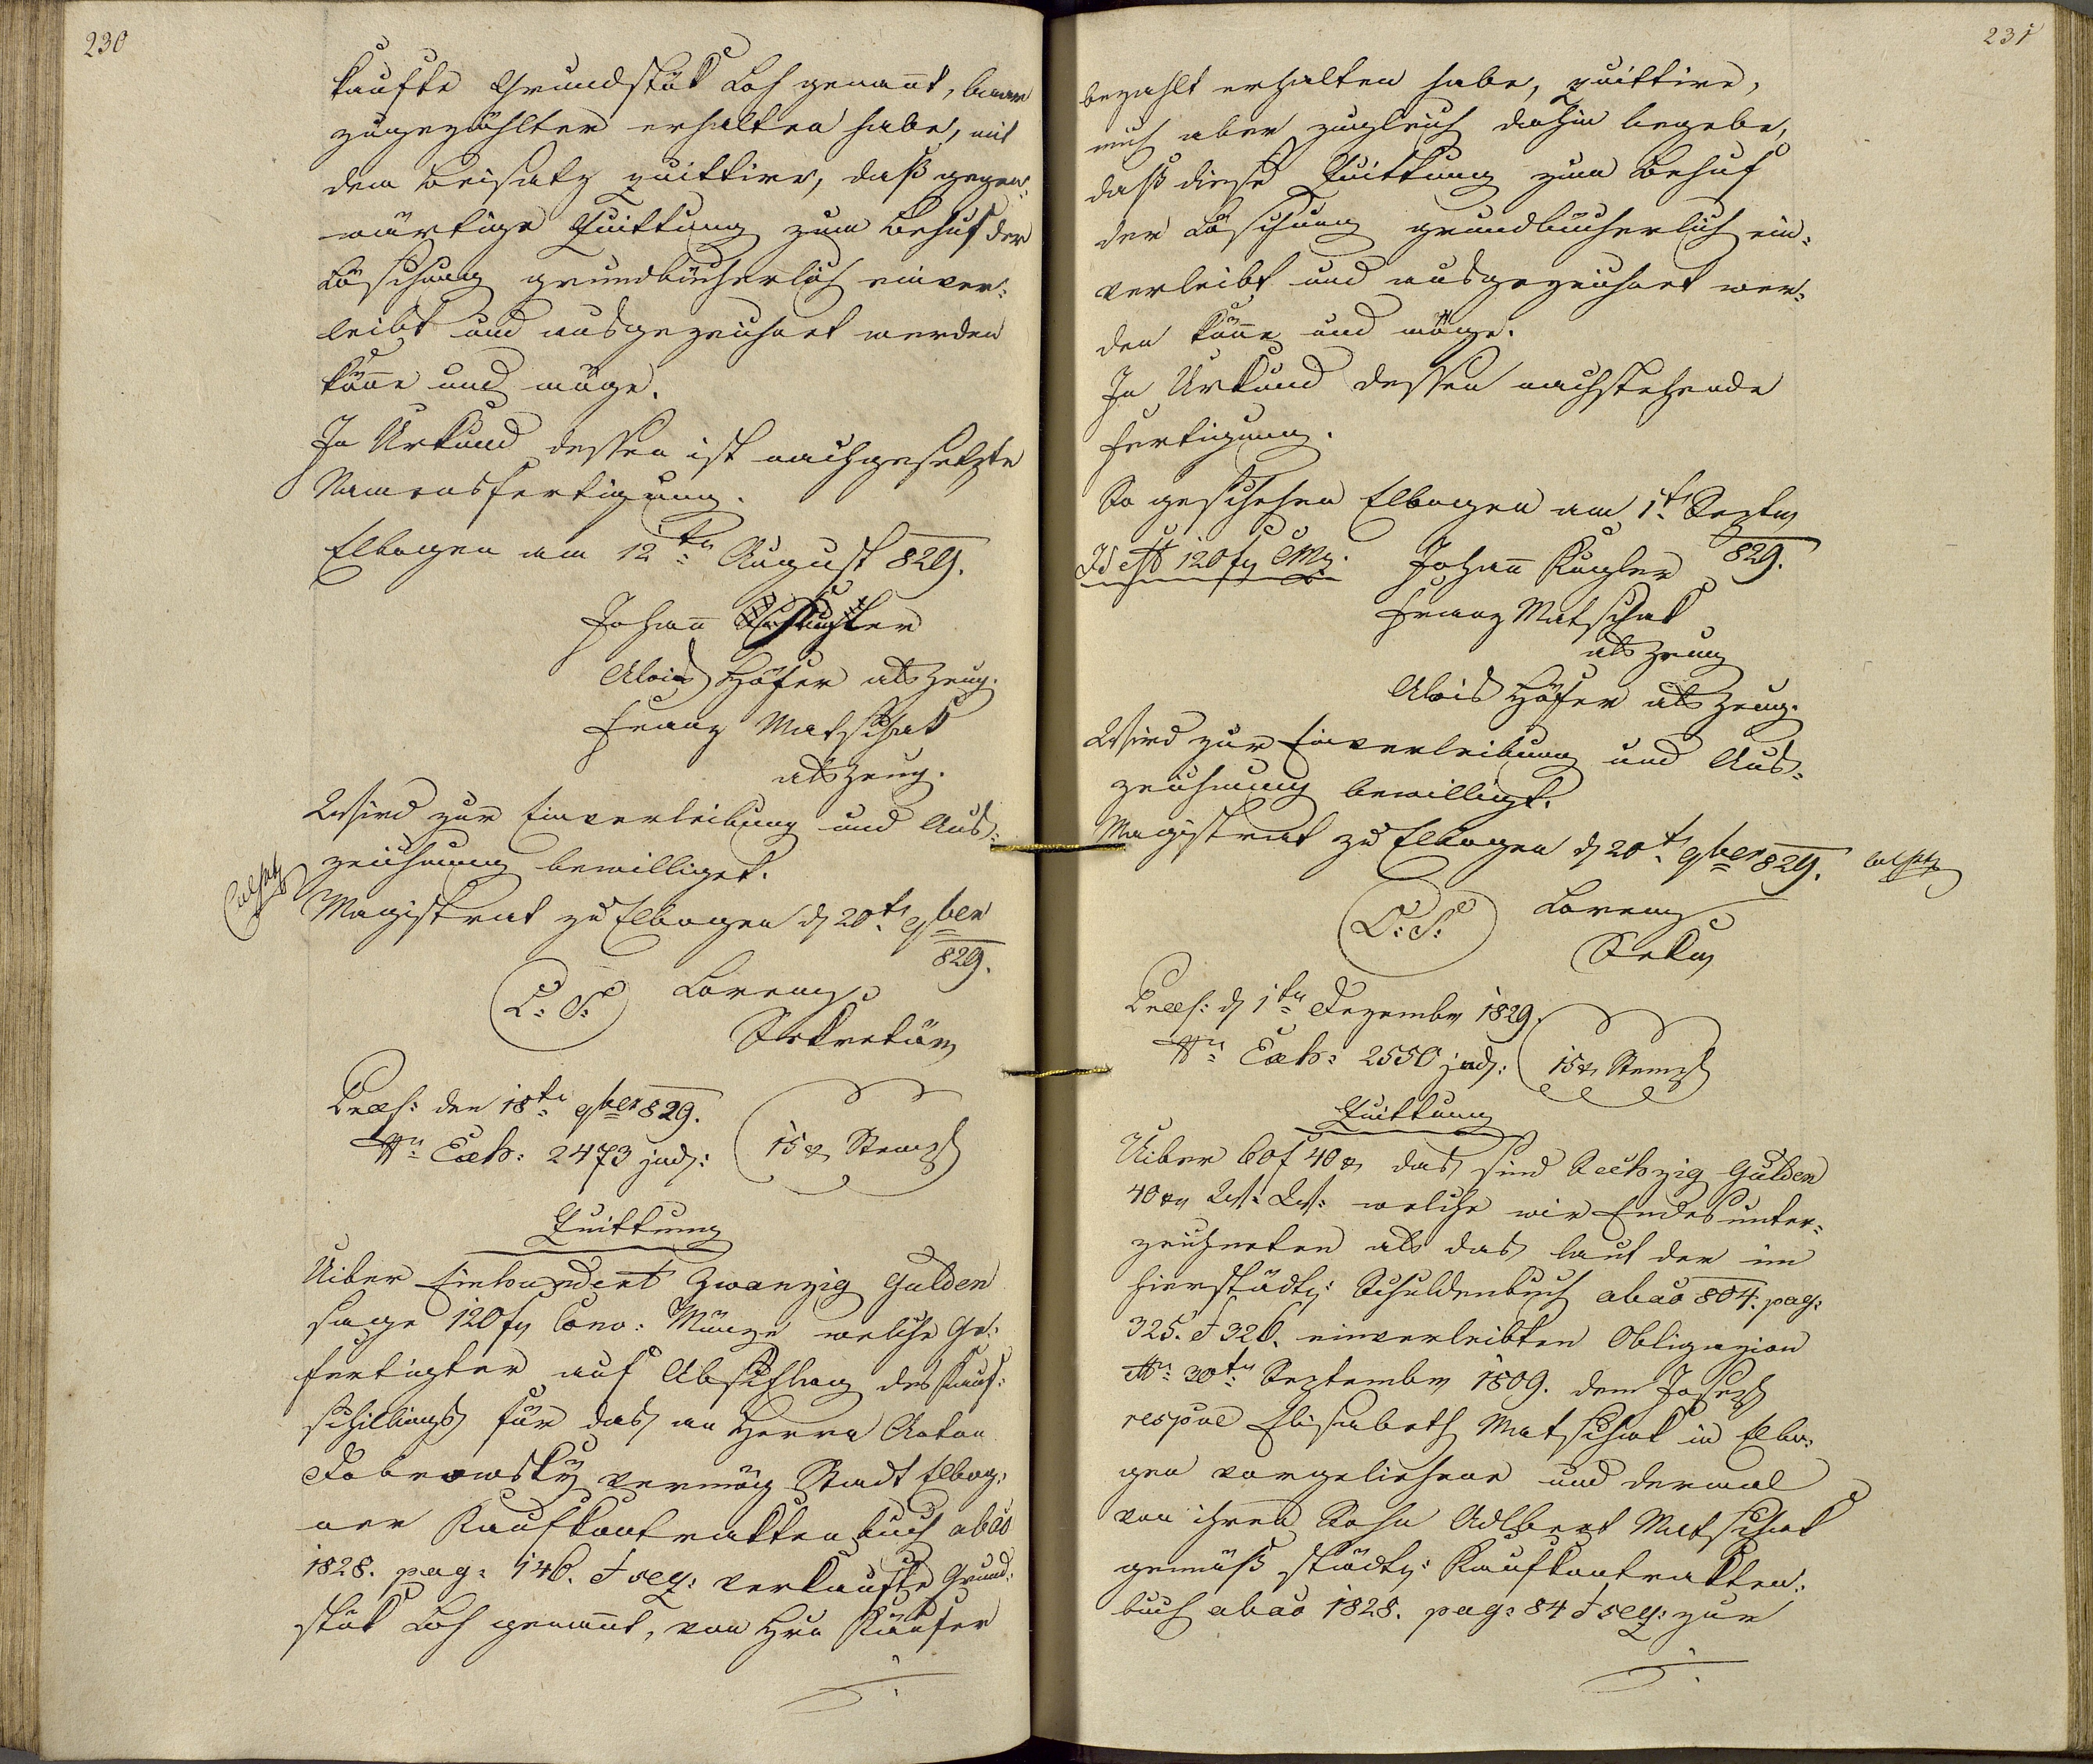 230
kaufte Grundstük Loh genant, baar
zugezählter erhalten habe, mit
dem Beisatz quittire, daß gegen-
wärtige Quittung zum Behuf der
Löschung grundbücherlich einver-
leibt und ausgezeichnet werden
köne und möge.
In Urkund dessen ist nachgesetzte
Namensfertigung.
Elbogen am 12ten August 829.
Johan
Alois Höfer als Zeug.
Franz Matschak
als Zeug.
Wird zur Einverleibung und Aus-
zeichnung bewilliget.
Magistrat zu Elbogen d 20t 9ber
829.
L: S: Lorenz
Sekretär
Praes: den 18te 9ber 829.
Nr: Exh: 2473 jud: 15 x Stempl
Quittung
Uiber Einhundert Zwanzig Gulden
sage 120 f Conv: Münze welche Ge-
fertigter auf Abschlag des Kauf-
schillings für das an Herrn Anton
Dobrowsky vermög Stadt Elbog-
ner Kaufkontraktenbuch abao
1828. pag: 146. & seq: verkaufte Grund-
stük Loh genannt, von Hrn Käufer
231
bezahlt erhalten habe, quittire,
mich aber zugleich dahin begebe,
daß diese Quittung zum Behuf
der Löschung grundbücherlich ein-
verleibt und ausgezeichnet wer-
den köne und möge.
In Urkund dessen nachstehende
Fertigung.
So geschehen Elbogen am 1t Septr
829.
Id est 120 f CMz. Johan Kugler
Franz Matschak
als Zeug
Alois Höfer als Zeug.
Wird zur Einverleibung und Aus-
zeichnung bewilligt.
Magistrat zu Elbogen d 20t 9ber 829.
L: S: Lorenz
Sekr
Praes: d 1te Dezembr 1829.
Nr: Exh: 2550 jud: 15 x Stempl
Quittung
Uiber 60 f 40 x das sind Sechzig Gulden
40 xr W: W: welche wir Endesunter-
zeichneten als das laut der im
hierstädt: Schuldenbuch abao 804. pag:
325. & 326. einverleibten Obligazion
30te Septembr 1809. dem Joseph
respve Elisabeth Matschak in Elbo-
gen vorgeliehene und dermal
von ihren Sohn Adlbert Matschak
gemäß städt: Kaufkontrakten-
buch abao 1828. pag: 84 & seq: zur